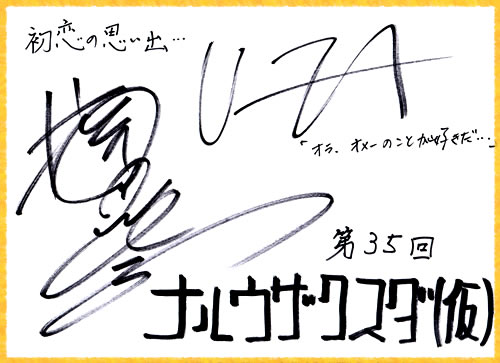 初恋の思い出…
U-ZA
「オラ、オメーのことが好きだ…」
第35回
ナルウザクスダ(仮)